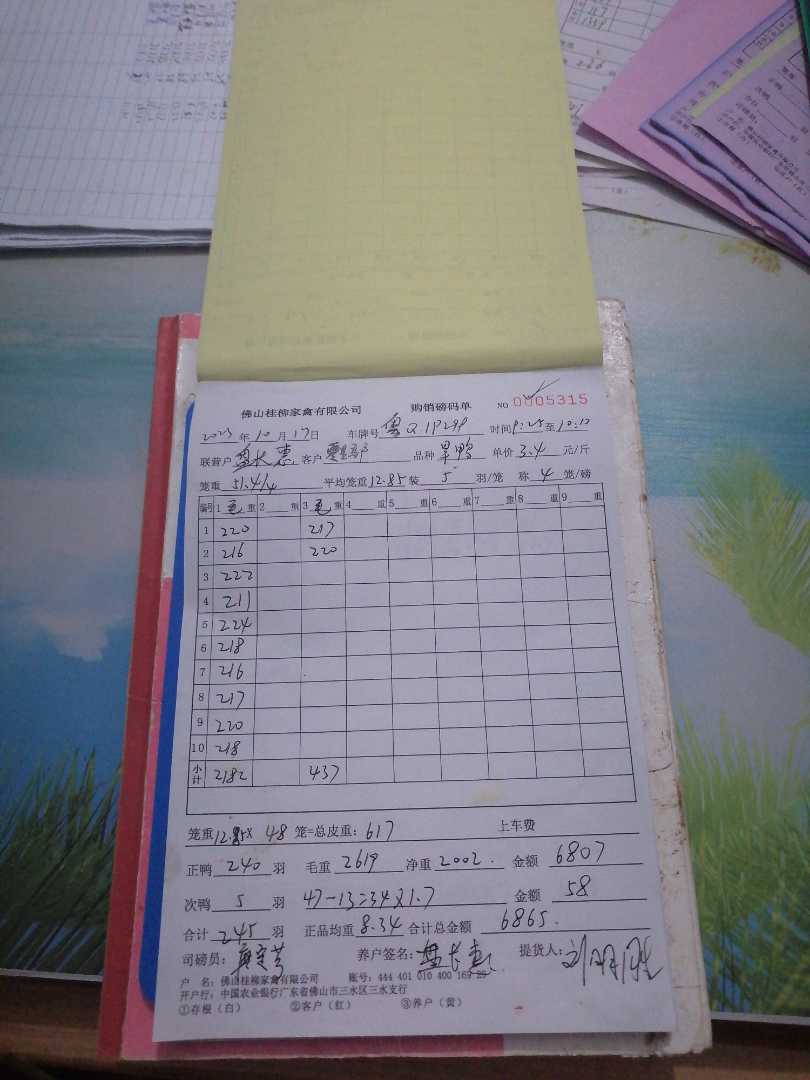 佛山桂柳家禽有限公司 购销磅码单 NO 0005315
2023年10月17日 车牌号 粤Q.1P299 时间9:25至10:10
联营户 盘长惠 客户 品种 旱鸭 单价 3.4 元/斤
笼重 51.4/4 平均笼重12.85 装 5 羽/笼 称 4 笼/磅
编号 1毛重 2 重 3毛重 4 重 5 重 6 重 7 重 8 重 9 重
1 220 217
2 216 220
3 222
4 211
5 224
6 218
7 216
8 217
9 220
10 218
小计 2182 437
笼重12.85× 48 笼=总皮重:617 上车费
正鸭 240 羽 毛重 2619 净重 2002. 金额 6807
次鸭 5 羽 47-13=34×1.7 金额 58
合计 245 羽 正品均重 8.34 合计总金额 6865.
司磅员: 养户签名:盘长惠 提货人:刘明胜
户 名:佛山桂柳家禽有限公司 账号:444 401 010 400 169 29
开户行:中国农业银行广东省佛山市三水区三水支行
①存根(白) ②客户(红) ③养户(黄)